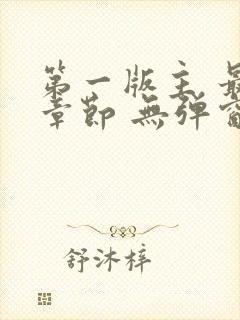 第一版主 最
章節 無彈窗
舒沐梓